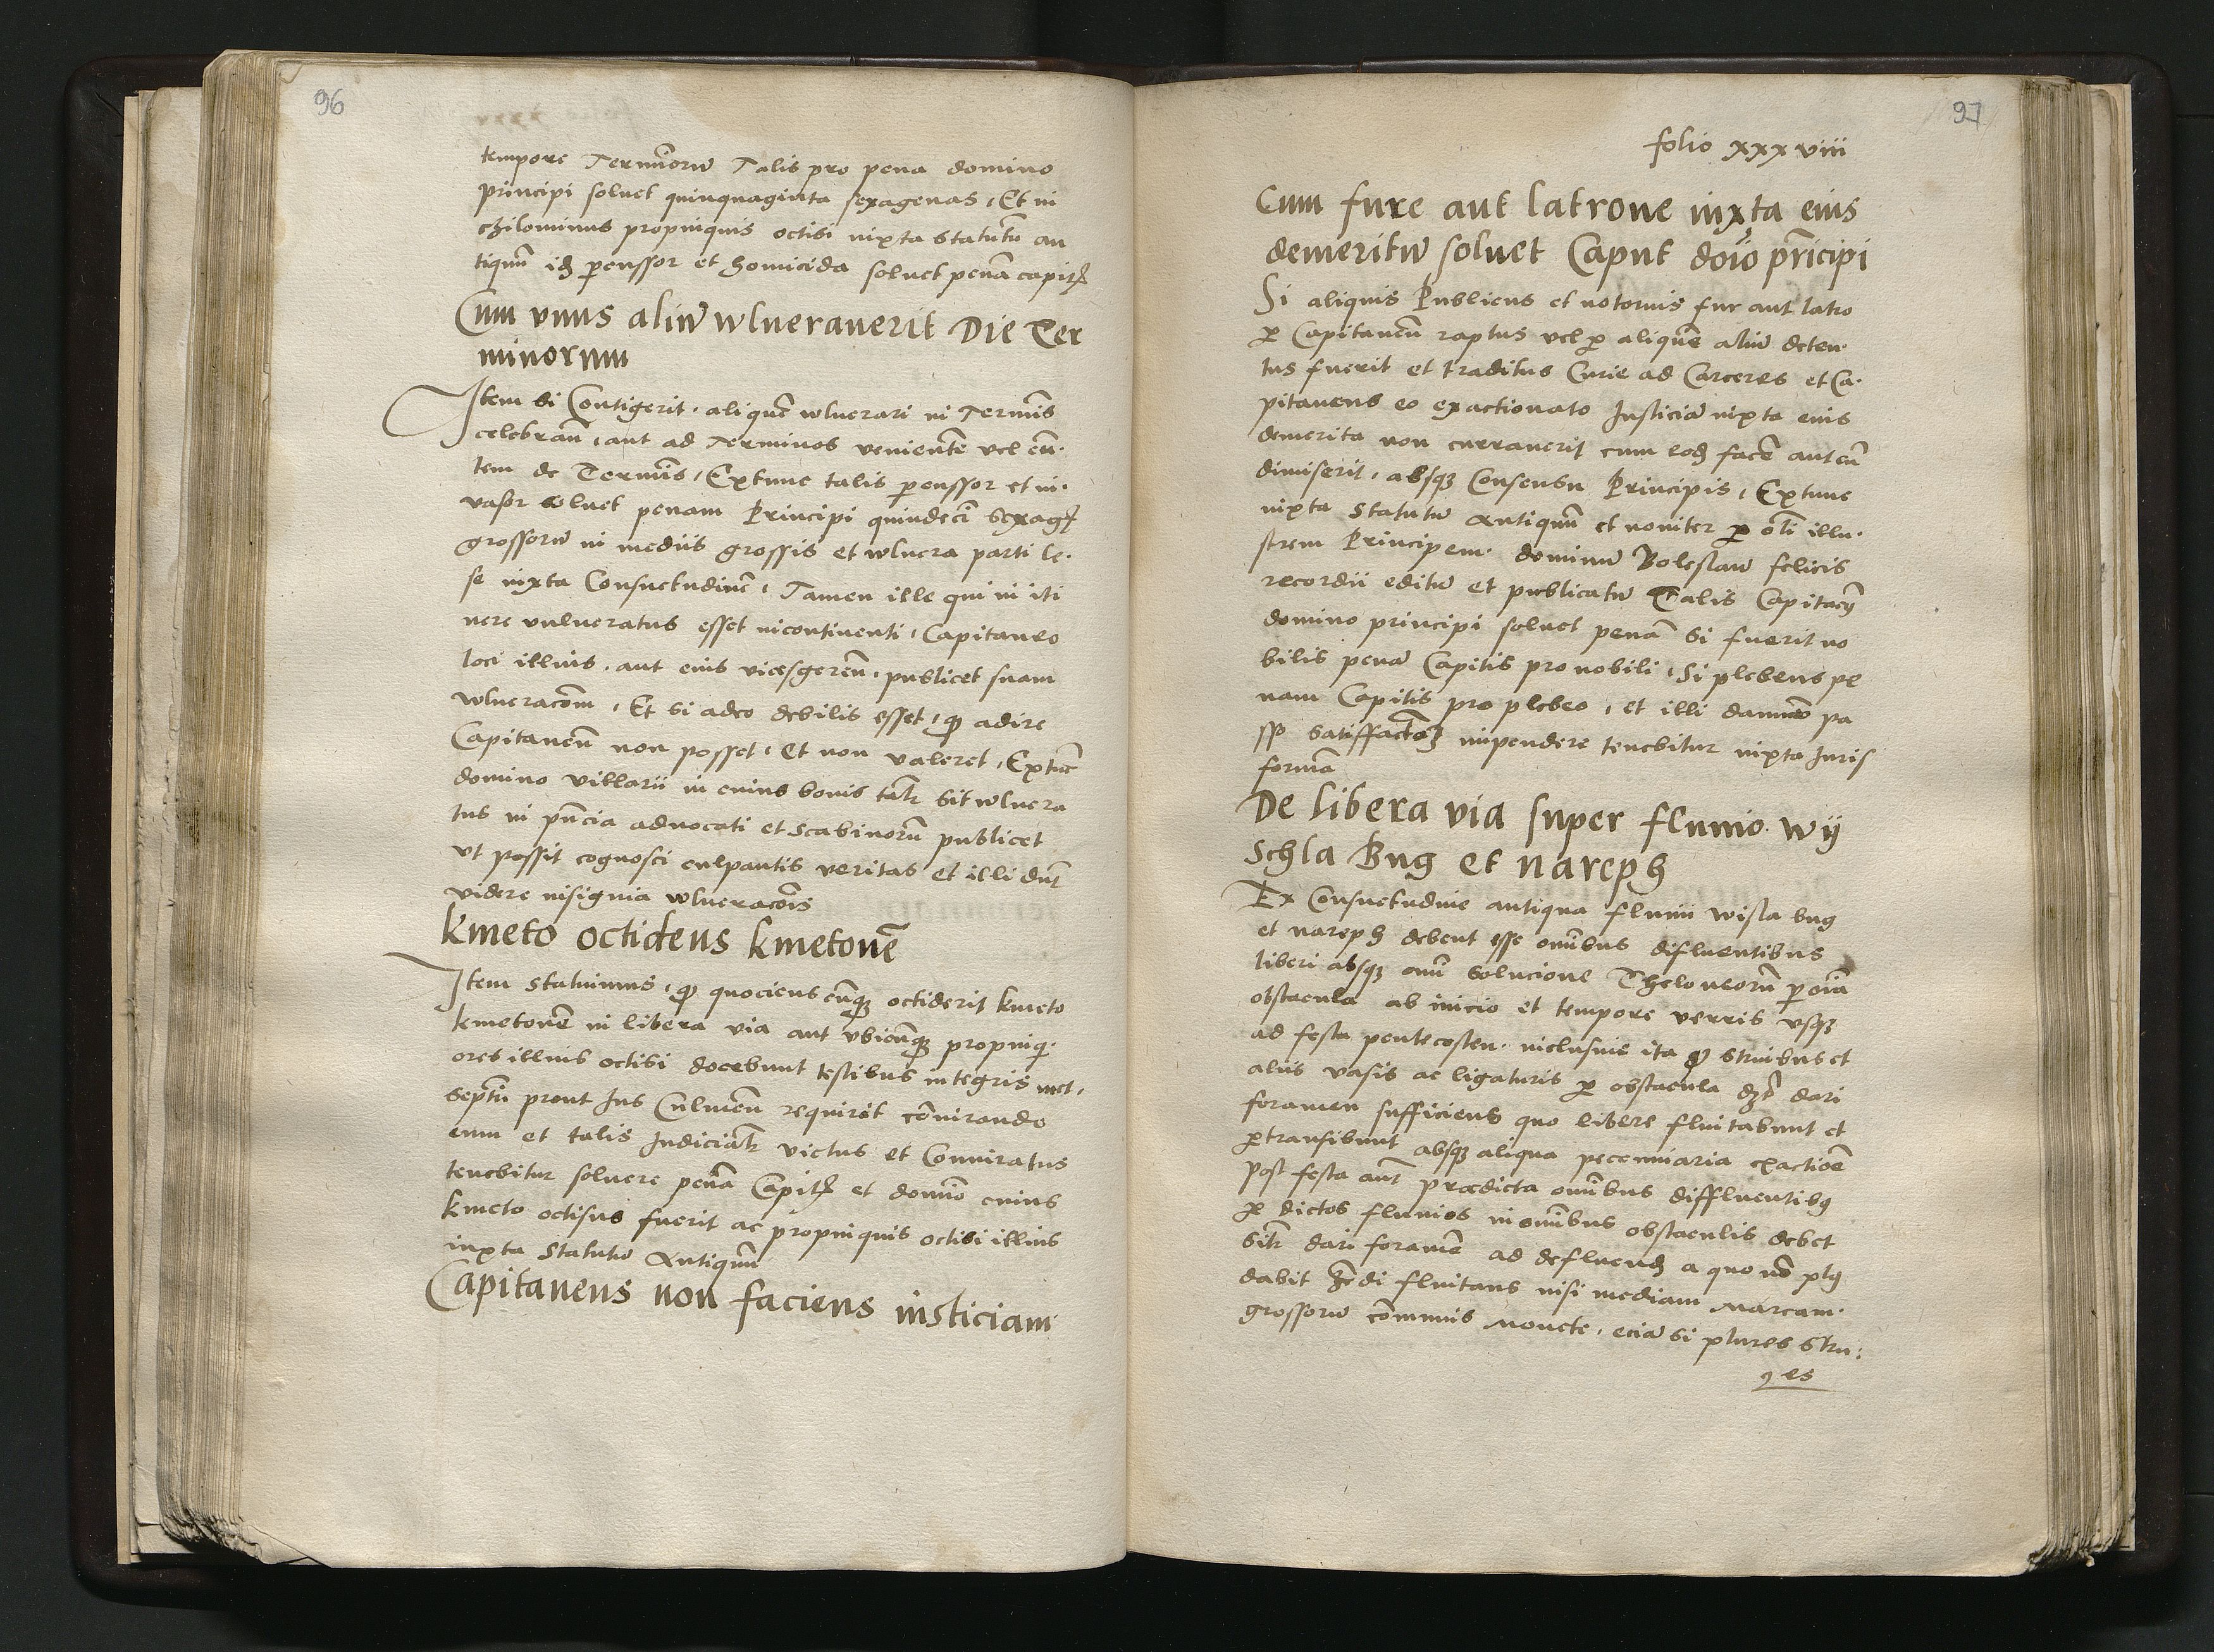 96
tempore Terminorū Talis pro pena domino
principi soluet quinquaginta sexagenas, Et ni
chilominus propinquis occisi iuxta statutū an
tiquū idē percussor et homicida soluet penā capitꝭ
Cum vnus aliū wlnerauerit Die Ter
minorum
Item si Contigerit aliquē wlnerari in Terminis
celebrañ, aut ad Terminos venientē vel eun-
tem de Terminis, Extunc talis ꝑcussor et in-
vasor soluet penam Principi quindecī sexagꝭ
grossorū in mediis grossis et wlnera parti le-
se iuxta Consuetudinē, Tamen ille qui in iti
nere vulneratus esset incontinenti, Capitaneo
loci illius, aut eius vicesgereñ, publicet suam
wlneracōm, Et si adeo debilis esset, qꝫ adire
Capitaneū non posset, et non valeret, Extūc
domino villarii in cuius bonis talr̄ sit wlnera
tus in pñcia aduocati et scabinorū publicet
vt possit cognosci culpantis veritas et illi dnt̄
videre insignia wlneracōis
kmeto occidens kmetonē
Item statuimus, qꝫ quociens cūqꝫ occiderit kmeto
kmetonē in libera via aut vbicūqꝫ propinqi-
ores illius occisi docebunt testibus integris met-
septīi prout Ius Culmeñ requirit cōuirando
eum et talis Iudicialr̄ victus et Conuiratus
tenebitur soluere penā Capitꝭ et domīo cuius
kmeto occisus fuerit ac propinquis occisi illius
iuxta Statutū Antiquū
Capitaneus non faciens iusticiam
97
folio xxxviii
Cum fure aut latrone iuxta eius
demeritū soluet Caput dōio prīncipi
Si aliquis Publicus et notorius fur aut latro
ꝑ Capitaneū raptus vel ꝑ aliquē aliū deten-
tus fuerit et traditus Curie ad Carceres et Ca-
pitaneus eo exactionato Iusticiā iuxta eius
demerita non currauerit cum eodē facē aut eū
dimiserit, absqꝫ Consensu Principis, Extunc
iuxta Statutū Antiquū et nouiter ꝑ oli illu-
strem Principem dominū Boleslaū felicis
recordii editū et publicatū Talis Capitaeꝰ
domino principi soluet penā Si fuerit no
bilis penā Capitis pro nobili, Si plebeus pe
nam Capitis pro plebeo, et illi damnū pa
sso satisffactōeꝫ impendere tenebitur iuxta Iuris
formā
De libera via super fluuio wij
schla Bug et nareph
Ex Consuetudine antiqua fluuii wisla bug
et nareph debent esse omībus difluentibus
liberi absqꝫ omī solucione Theloneorū ꝑ oīa
obstacula ab inicio et tempore verris vsqꝫ
ad festa pentecosten inclusiue ita qꝫ struibus et
aliis vasis ac ligaturis ꝑ obstacula dꝫt dari
foramen sufficiens quo libere fluitabunt et
ꝑtransibunt absqꝫ aliqua peccuniaria exactiōe
post festa aut̄ prædicta omībus diffluentibꝰ
ꝑ dictos fluuios in omībus obstaculis debet
silr̄ dari foramē ad defluendū a quo nō plꝰ
dabit fluitans nisi mediam Marcam
grossorū cōmunis Monete, eciā si plures stru-
es